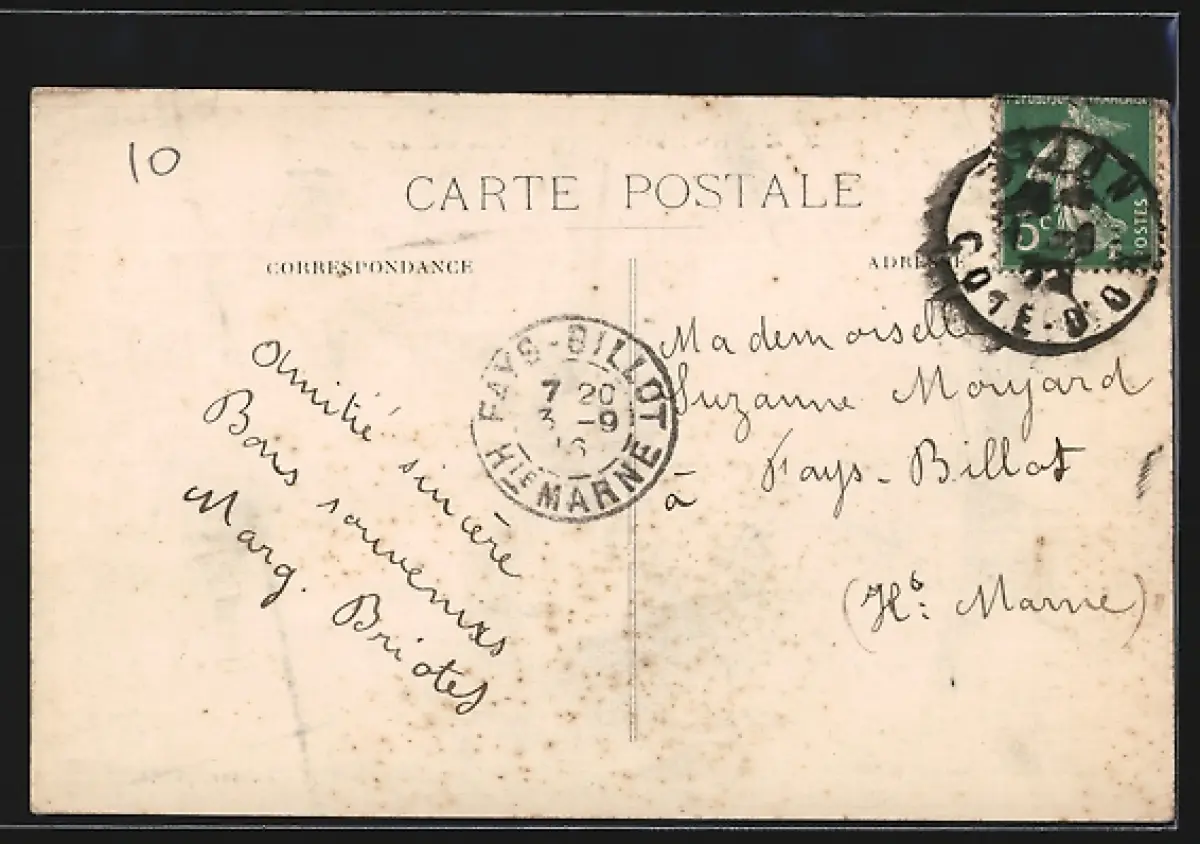 10
CARTE POSTALE
CORRESPONDANCE
ADRESSE
5c
POSTES
COTE-D'OR
FAYS-BILLOT
7 20
3 -9
16
HTE MARNE
Amitié sincère
Bons souvenirs
Marg. Briotet
Mademoiselle
Suzanne Moryard
à Fays-Billot
(Hte: Marne)